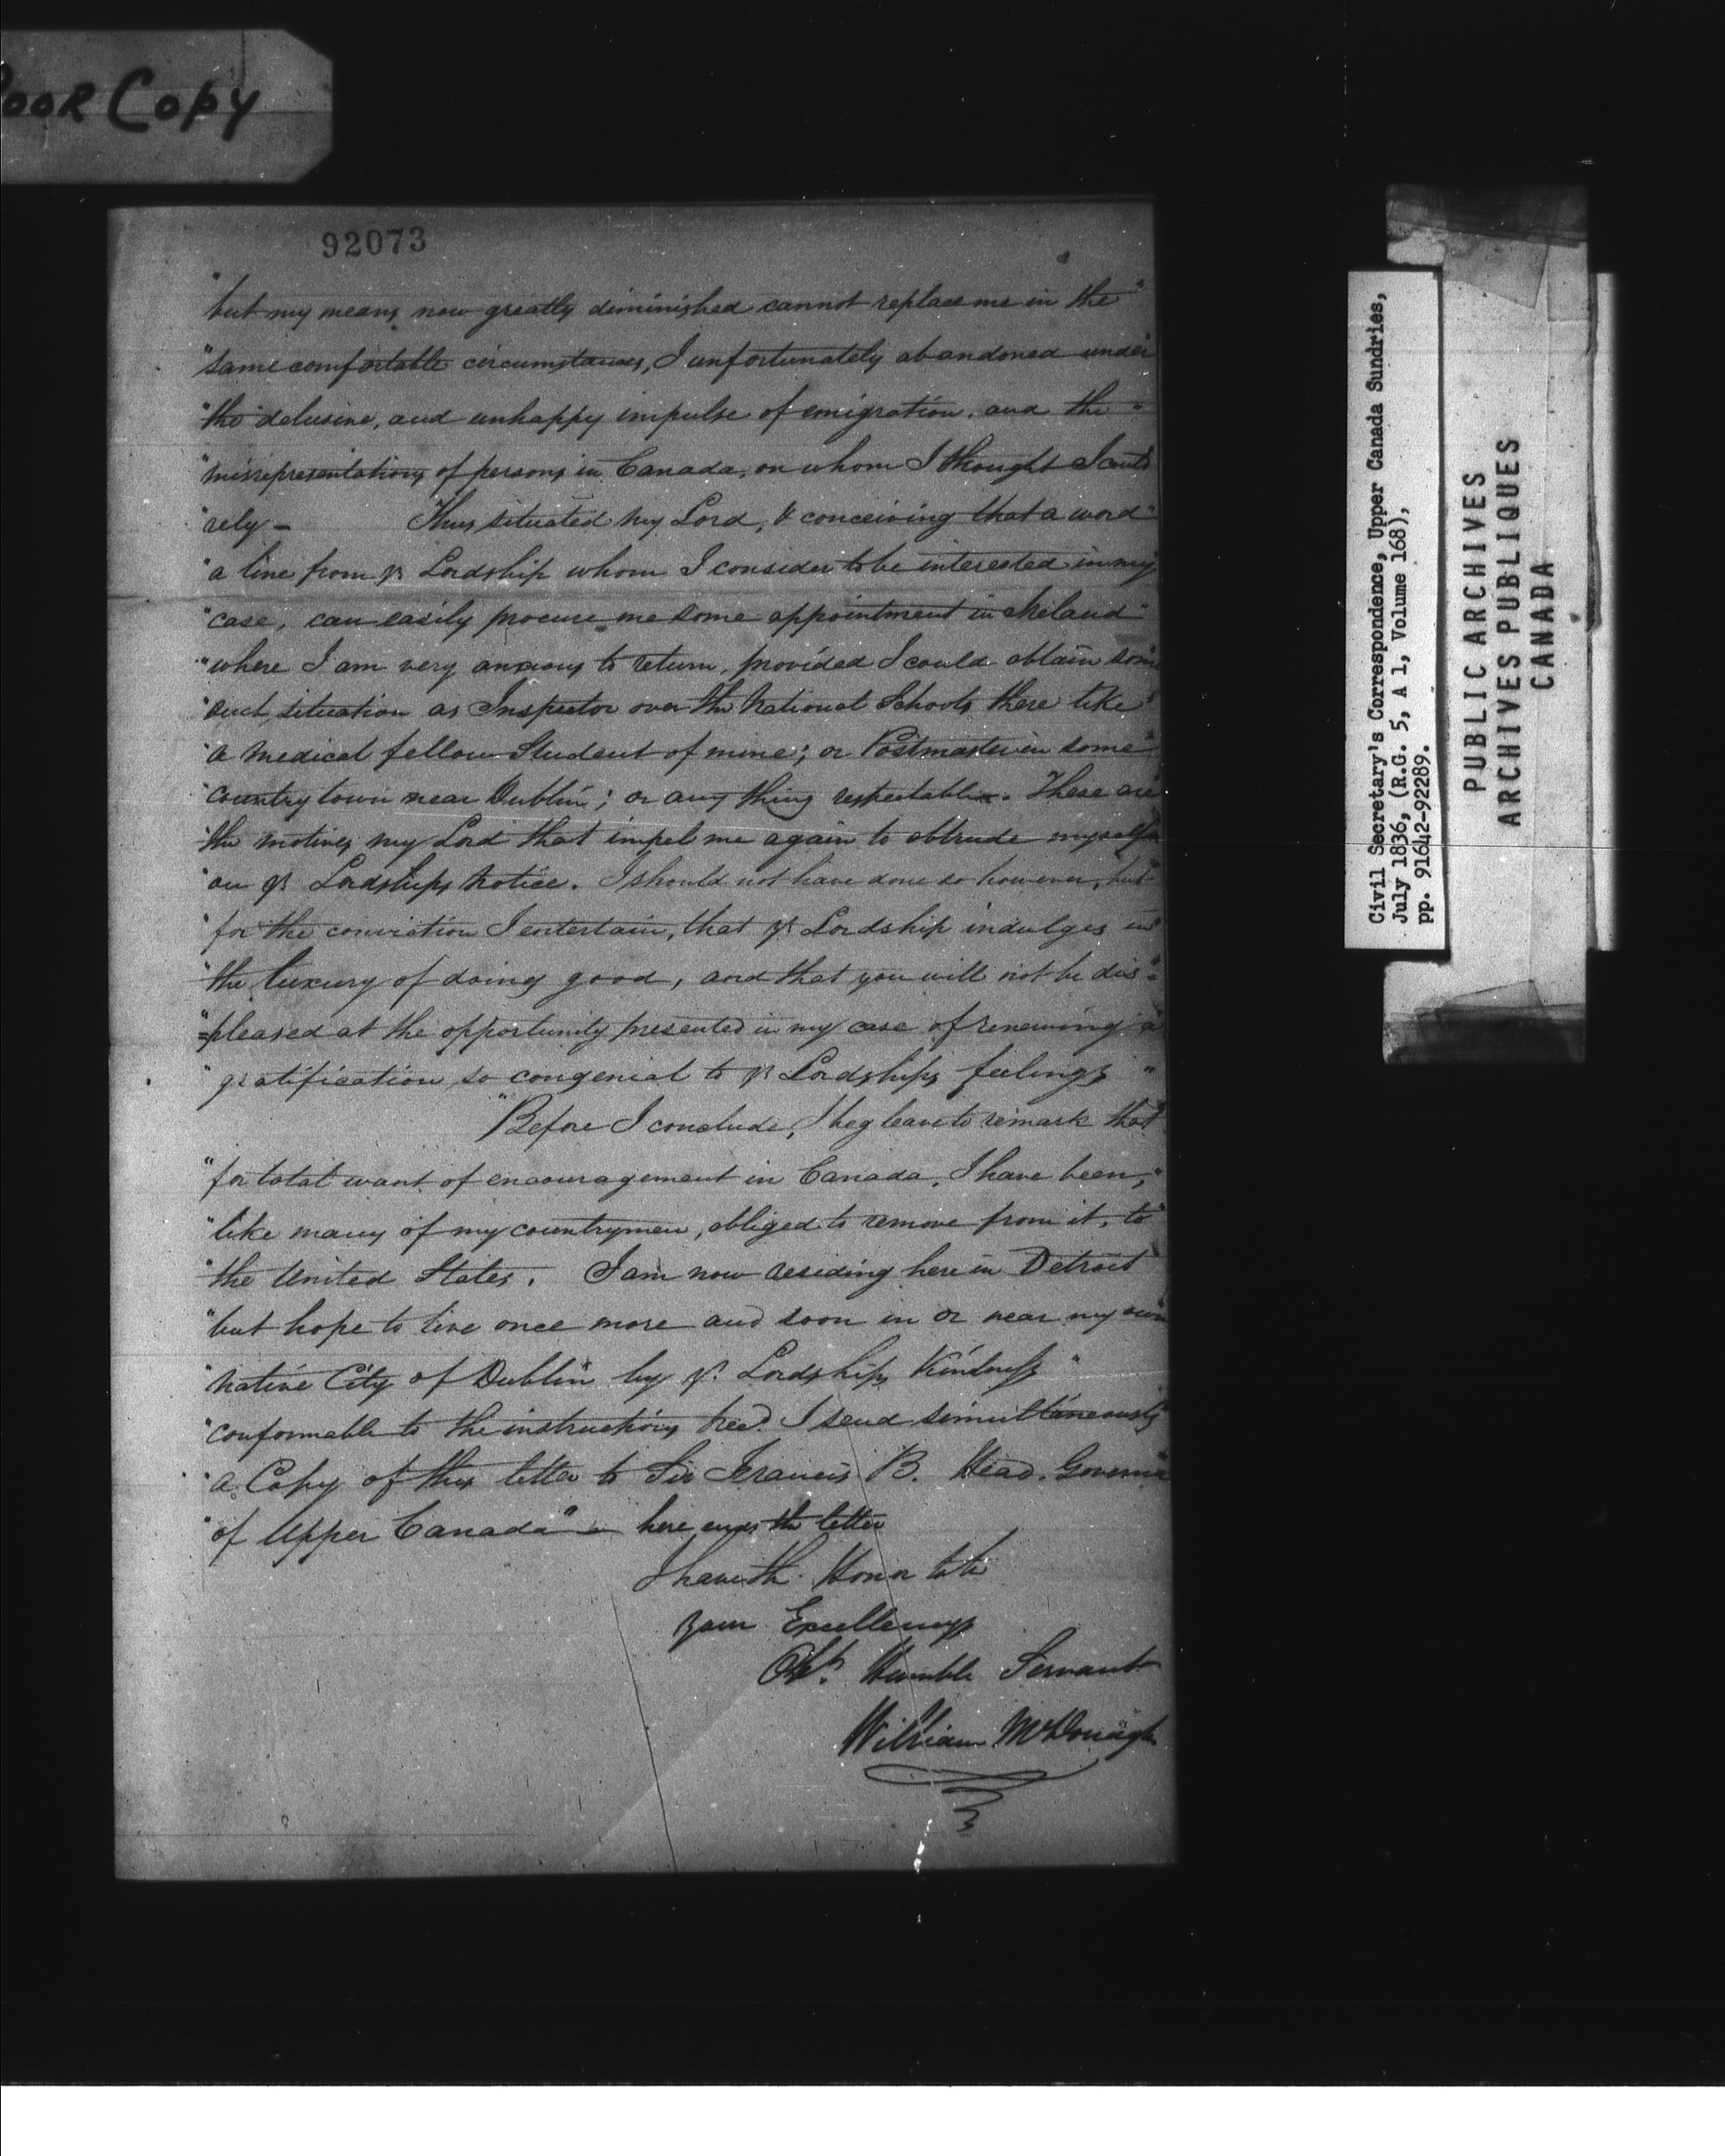 Poor Copy
92073
"but my means now greatly diminished cannot replace me in the"
"same comfortable circumstances, I unfortunately abandoned under
"the delusive, and unhappy impulse of emigration, and the "
"misrepresentations of persons in Canada, on whom I thought I could
"rely – Thus situated my Lord, & conceiving that a word"
"a line from yr Lordship whom I consider to be interested in my
"case, can easily procure me some appointment in Ireland"
"where I am very anxious to return, provided I could obtain some
"such situation as Inspector over the National Schools there like"
"a medical fellow Student of mine; or Postmaster in some"
"country town near Dublin; or any thing respectable. These are
"the motives my Lord that impel me again to obtrude myself
"on yr Lordships notice. I should not have done so however, but
"for the conviction I entertain, that yr Lordship indulges in"
"the luxury of doing good, and that you will not be dis=
"=pleased at the opportunity presented in my case of renewing a
"gratification so congenial to yr Lordships feelings "
"Before I conclude, I beg leave to remark that
"for total want of encouragement in Canada, I have been,"
"like many of my countrymen, obliged to remove from it, to"
"the United States. I am now residing here in Detroit
"but hope to live once more and soon in or near my own
"native City of Dublin by yr. Lordships Kindness"
"conformable to the instructions recd. I send simultaneously"
"a Copy of this letter to Sir Francis B. Head, Governor
"of Upper Canada" – here ends the letter
I have the Honor to be
your Excellencys
Obt. Humble Servant
William McDonagh
Civil Secretary's Correspondence, Upper Canada Sundries,
July 1836, (R.G. 5, A 1, Volume 168),
pp. 91642-92289.
PUBLIC ARCHIVES
ARCHIVES PUBLIQUES
CANADA